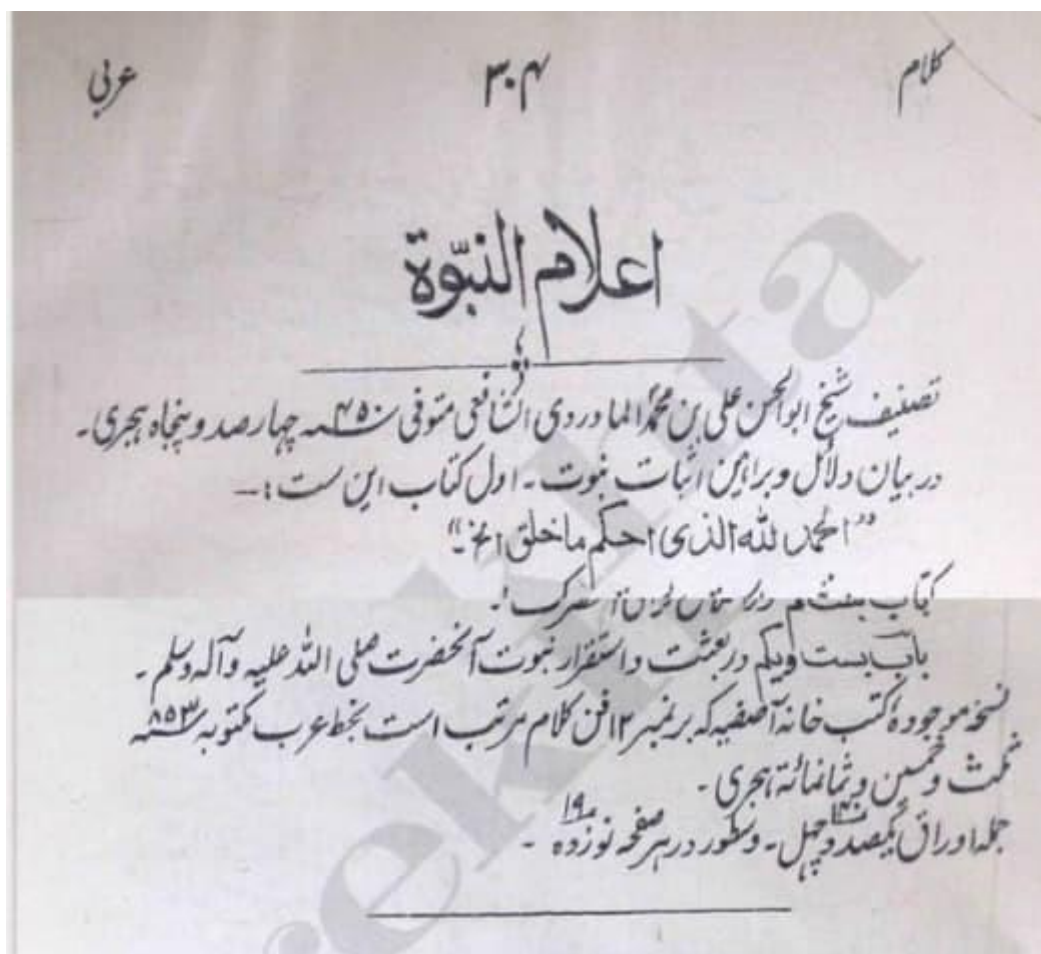 کلام ۳۰۴ عربی
اعلام النبوّة
تصنیف شیخ ابوالحسن علی بن محمد الماوردی الشافعی متوفی ۴۵۰ سنه چهارصد و پنجاه هجری۔
در بیان دلائل و براهین اثبات نبوت۔ اول کتاب این ست:—
"الحمد لله الذی احکم ما خلق الخ۔"
باب بست ویکم در بعثت و استقرار نبوت آنحضرت صلی الله علیه وآله وسلم۔
نسخه موجوده کتب خانه آصفیه که بر نمبر ۱۲ فن کلام مرتب است بخط عرب مکتوبه سنه ۸۵۳
ثلث و خمسین و ثمانمائة هجری۔
جمله اوراق یکصد و چهل ۱۴۰۔ و سطور در هر صفحه نوزده ۱۹۔